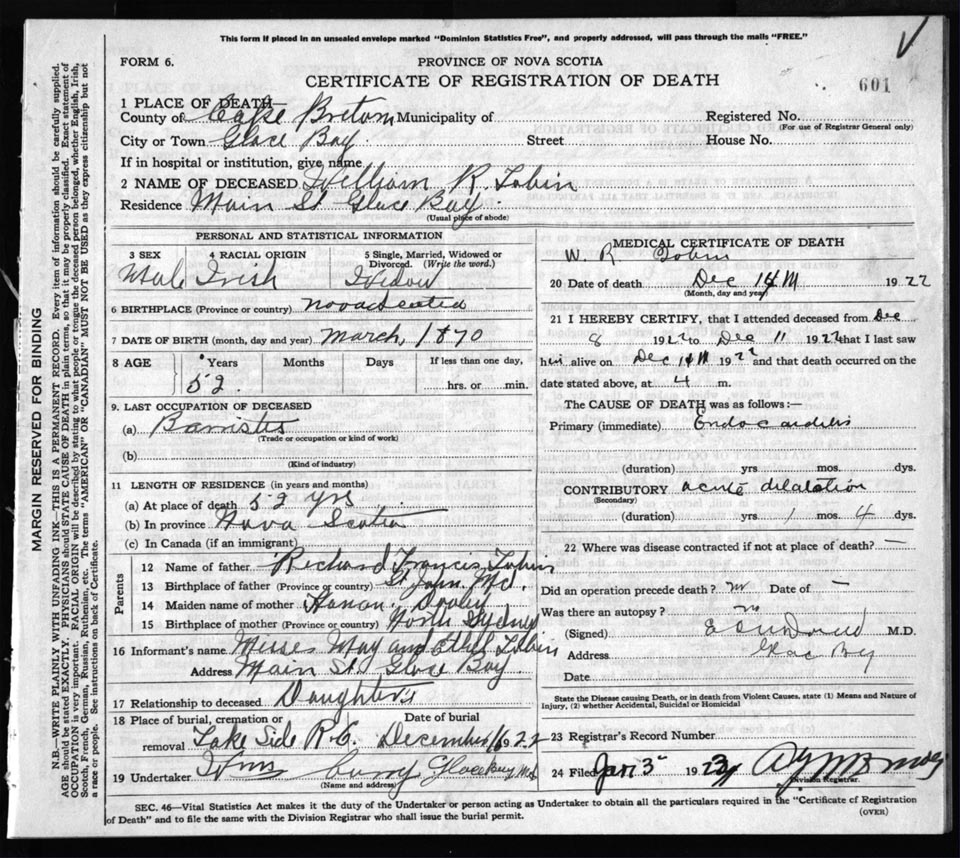 This form if placed in an unsealed envelope marked "Dominion Statistics Free", and properly addressed, will pass through the mails "FREE."
FORM 6.
PROVINCE OF NOVA SCOTIA
CERTIFICATE OF REGISTRATION OF DEATH
601
1 PLACE OF DEATH—
County of Cape Breton Municipality of Registered No.
(For use of Registrar General only)
City or Town Glace Bay Street House No.
If in hospital or institution, give name
2 NAME OF DECEASED William R. Tobin
Residence Main St Glace Bay
(Usual place of abode)
PERSONAL AND STATISTICAL INFORMATION
3 SEX 4 RACIAL ORIGIN 5 Single, Married, Widowed or Divorced. (Write the word.)
Male Irish Widow
6 BIRTHPLACE (Province or country) Nova Scotia
7 DATE OF BIRTH (month, day and year) March, 1870
8 AGE Years Months Days If less than one day,
52 hrs. or min.
9. LAST OCCUPATION OF DECEASED
(a) Barrister
(Trade or occupation or kind of work)
(b)
(Kind of industry)
11 LENGTH OF RESIDENCE (in years and months)
(a) At place of death 52 yrs
(b) In province Nova Scotia
(c) In Canada (if an immigrant)
Parents
12 Name of father Richard Francis Tobin
13 Birthplace of father (Province or country) St John
14 Maiden name of mother Dooley
15 Birthplace of mother (Province or country) North Sydney
16 Informant's name Misses May and Ethel Tobin
Address Main St. Glace Bay
17 Relationship to deceased Daughters
18 Place of burial, cremation or removal Date of burial
Lake Side R.C. December 16 22
19 Undertaker Wm Curry
(Name and address)
MEDICAL CERTIFICATE OF DEATH
W. R. Tobin
20 Date of death Dec 1922
(Month, day and year)
21 I HEREBY CERTIFY, that I attended deceased from Dec
8 1922 to Dec 11 1922 that I last saw
him alive on Dec 1922 and that death occurred on the
date stated above, at 4 m.
The CAUSE OF DEATH was as follows:—
Primary (immediate) Endocarditis
(duration) yrs. mos. dys.
CONTRIBUTORY acute dilatation
(Secondary)
(duration) yrs. mos. 4 dys.
22 Where was disease contracted if not at place of death? —
Did an operation precede death? Date of —
Was there an autopsy?
(Signed) M.D.
Address
Date
State the Disease causing Death, or in death from Violent Causes, state (1) Means and Nature of
Injury, (2) whether Accidental, Suicidal or Homicidal
23 Registrar's Record Number
24 Filed Jan 3 1923
Division Registrar.
SEC. 46—Vital Statistics Act makes it the duty of the Undertaker or person acting as Undertaker to obtain all the particulars required in the "Certificate of Registration
of Death" and to file the same with the Division Registrar who shall issue the burial permit.
(OVER)
MARGIN RESERVED FOR BINDING
N.B.—WRITE PLAINLY WITH UNFADING INK—THIS IS A PERMANENT RECORD. Every item of information should be carefully supplied.
AGE should be stated EXACTLY. PHYSICIANS should state CAUSE OF DEATH in plain terms, so that it may be properly classified. Exact statement of
OCCUPATION is very important. RACIAL ORIGIN will be described by stating to what people or tongue the deceased person belonged, whether English, Irish,
Scotch, French, German, Russian, Ruthenian, etc. The terms "AMERICAN" or "CANADIAN" MUST NOT BE USED as they express citizenship but not
a race or people. See instructions on back of Certificate.